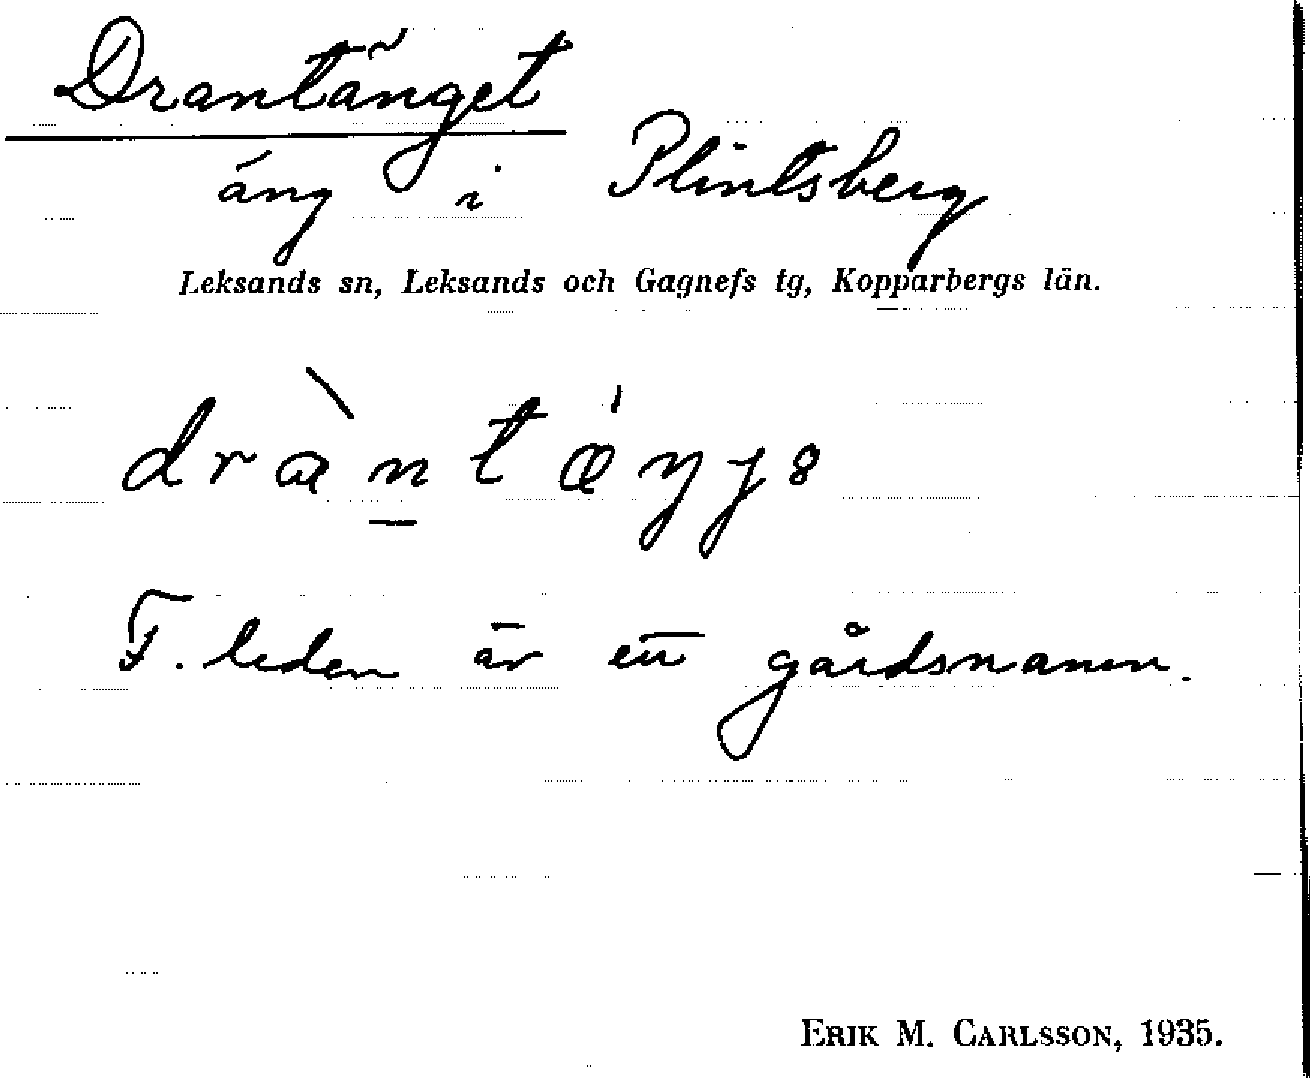 Drantänget
äng i Plintsberg
Leksands sn, Leksands och Gagnefs tg, Kopparbergs län.
dràntǽŋjə
F. leden är ett gårdsnamn.
ERIK M. CARLSSON, 1935.